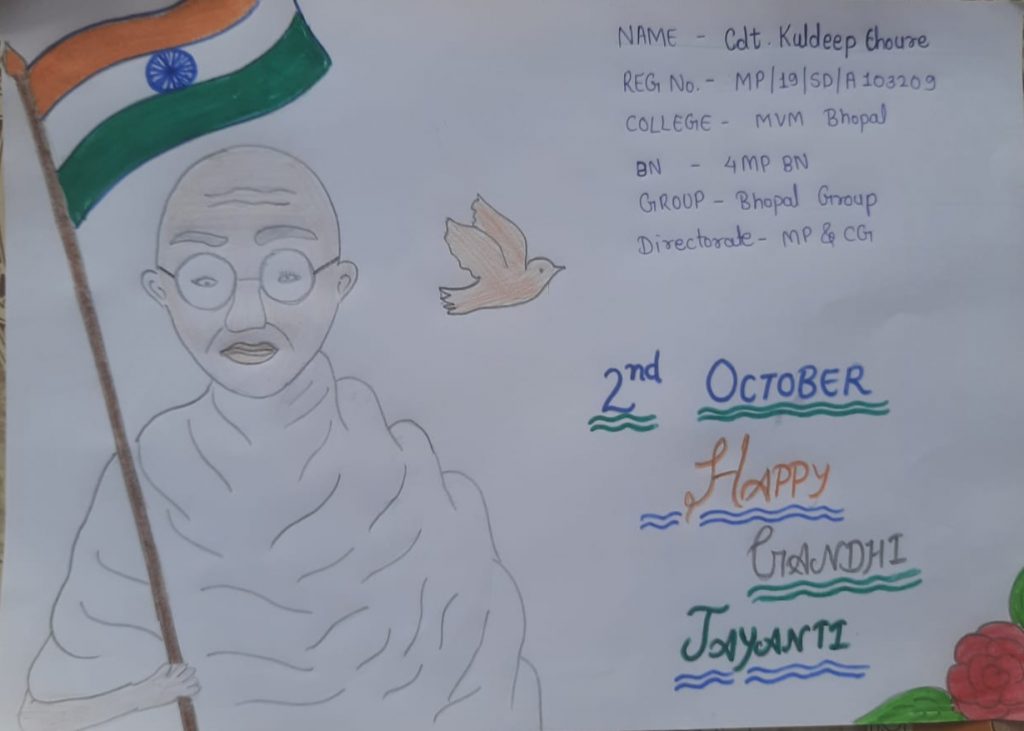 NAME - Cdt. Kuldeep Ehoure
REG No. - MP/19/SD/A103209
COLLEGE - MVM Bhopal
BN - 4 MP BN
GROUP - Bhopal Group
Directorate - MP & CG
2nd OCTOBER
HAPPY
GANDHI
JAYANTI